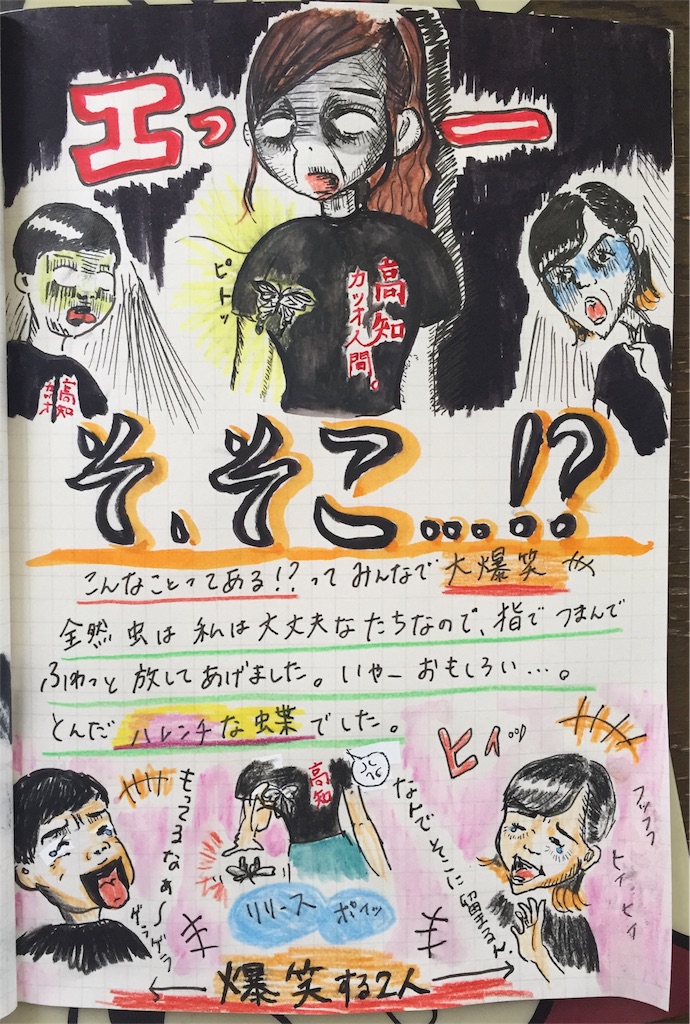 エっー
ピトッ
高知
カツオ人間。
高知
カツオ
そ、そこ...!?
こんなことってある!?ってみんなで大爆笑
全然虫は私は大丈夫なたちなので、指でつまんで
ふわっと放してあげました。いやーおもしろい…。
とんだハレンチな虫葉でした。
ヒィッ
もってるなぁ〜
ゲラゲラ
高知
リリース ポイッ
なんでそこに留まるん
フッフフ
ヒィ ヒィ
←爆笑する2人→